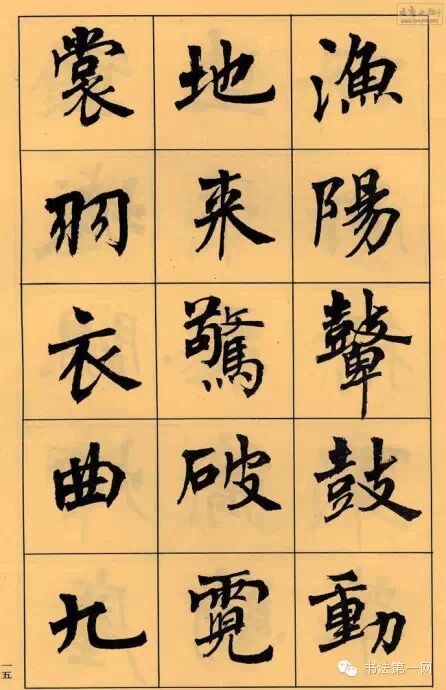 漁陽鼙鼓動
地来驚破霓
裳羽衣曲九
一五
书法第一网